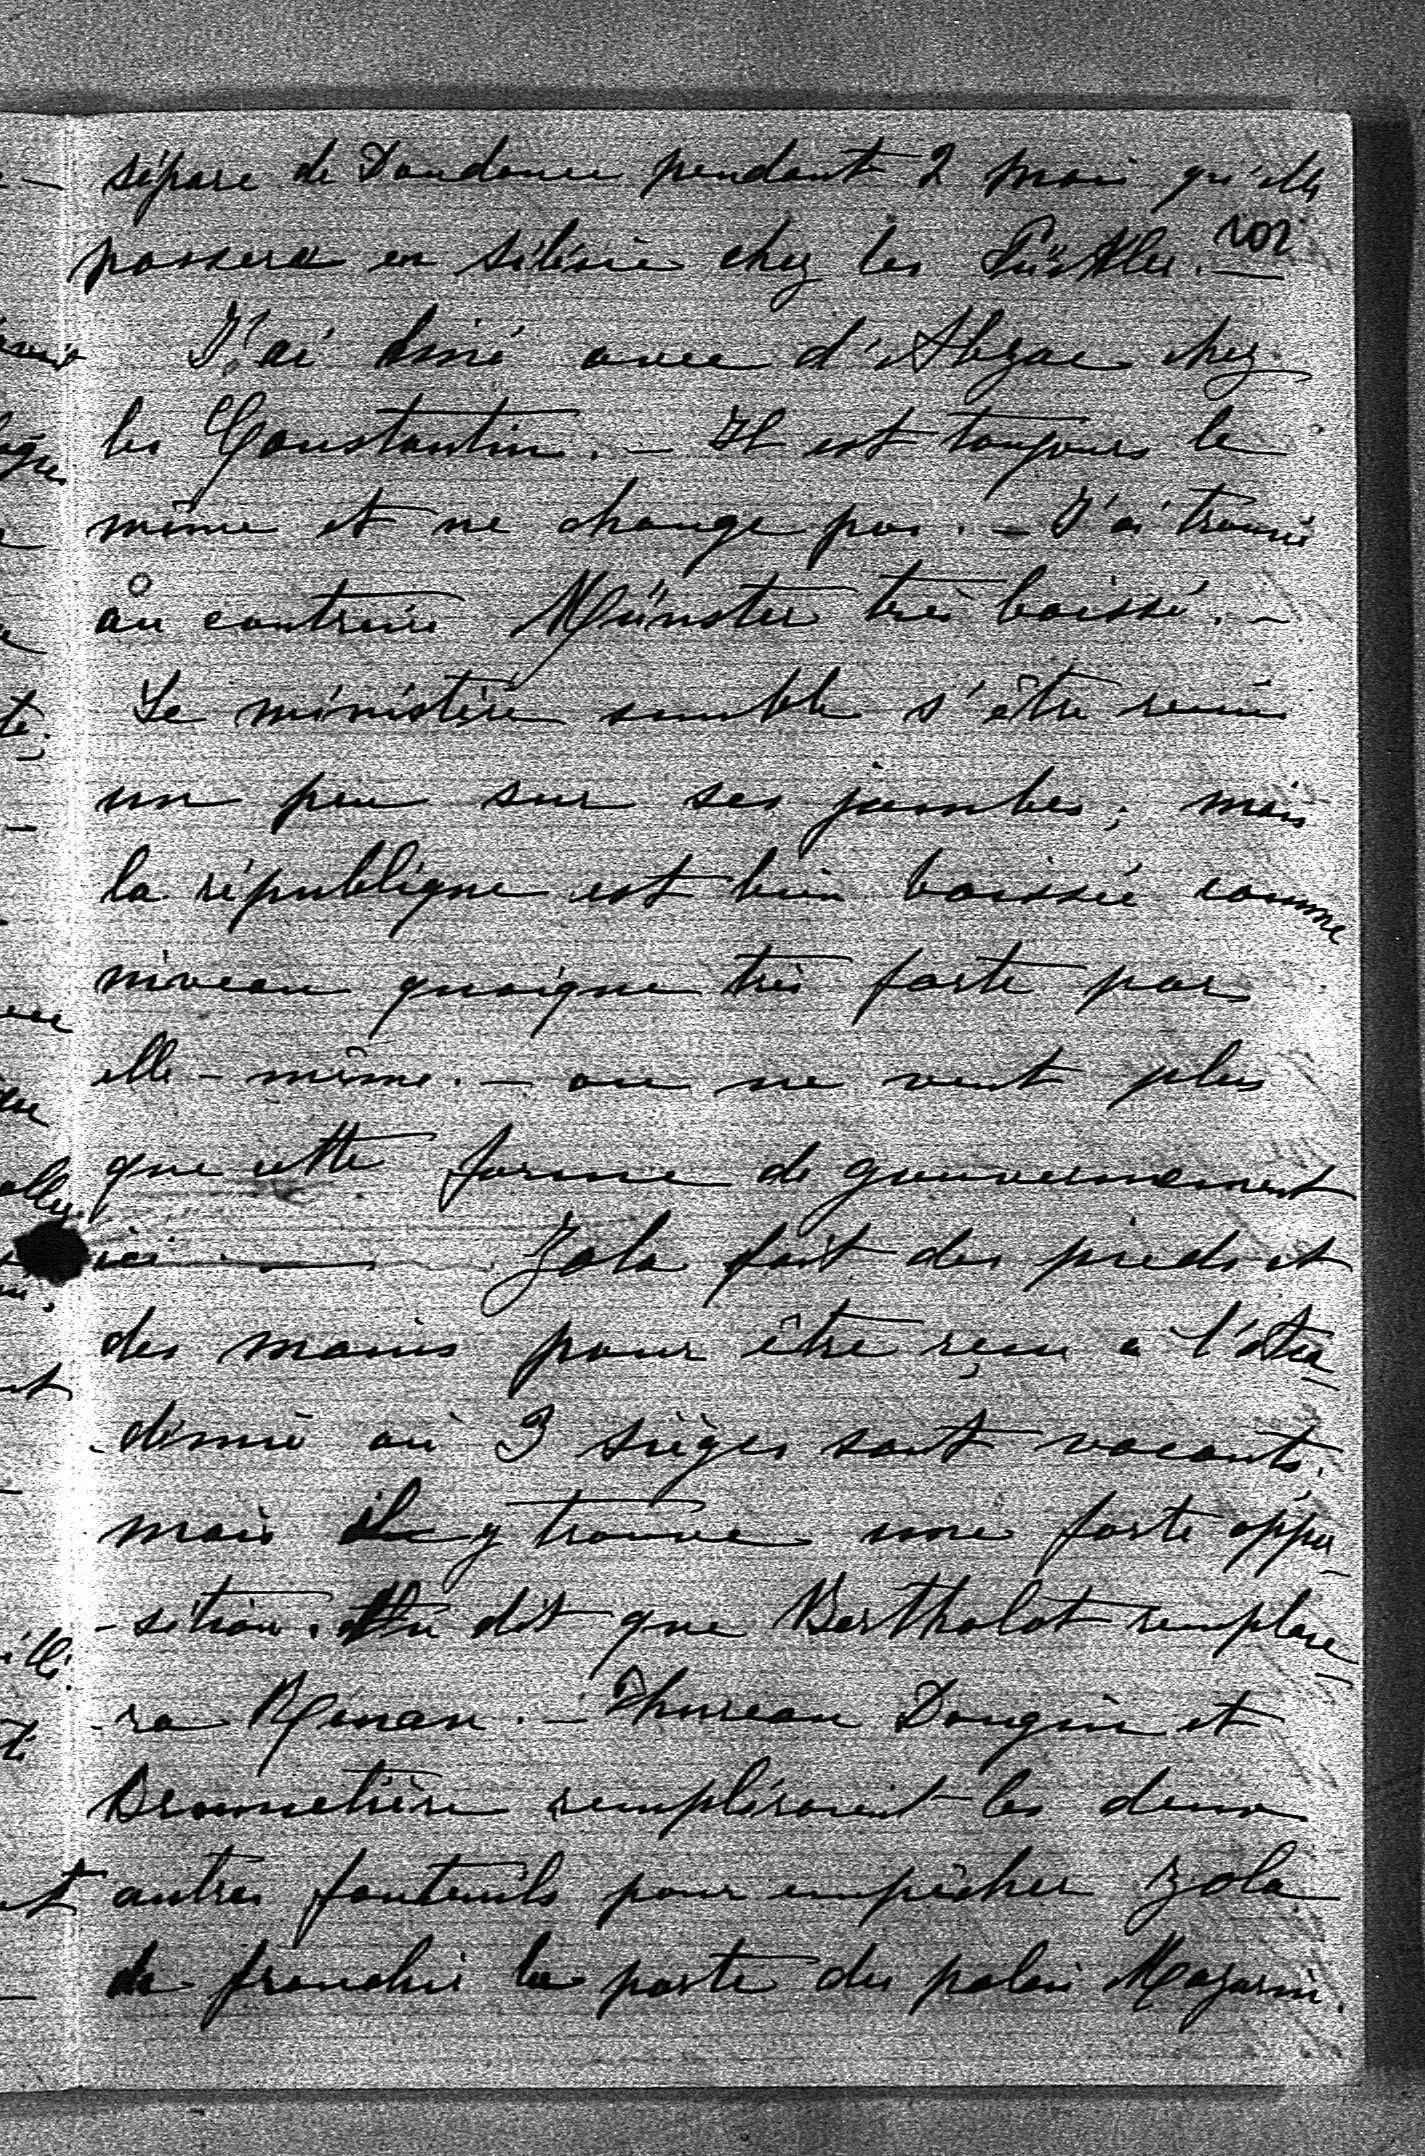 sépare de Doudouce pendant 2 mois qu'elle
202
passera en Silésie chez les
J'ai diné avec d'Abzac chez
les Constantin. – Il est toujours le
même et ne change pas. – J'ai trouvé
au contraire Münster très baissé. –
Le ministère semble s'être remis
un peu sur ses jambes; mais
la république est bien baissée comme
niveau quoique très forte par
elle-même. – on ne veut plus
que cette forme de gouvernement
ici. — Zola fait des pieds et
des mains pour être reçu à l'Aca-
-démie où 3 sièges sont vacants.
mais il y trouve une forte oppo-
-sition. On dit que Bertholot remplace-
-ra Renan. – Thureau Dangin et
Brunnetière rempliraient les deux
autres fauteuils pour empêcher Zola
de franchir la porte du palais Mazarin.